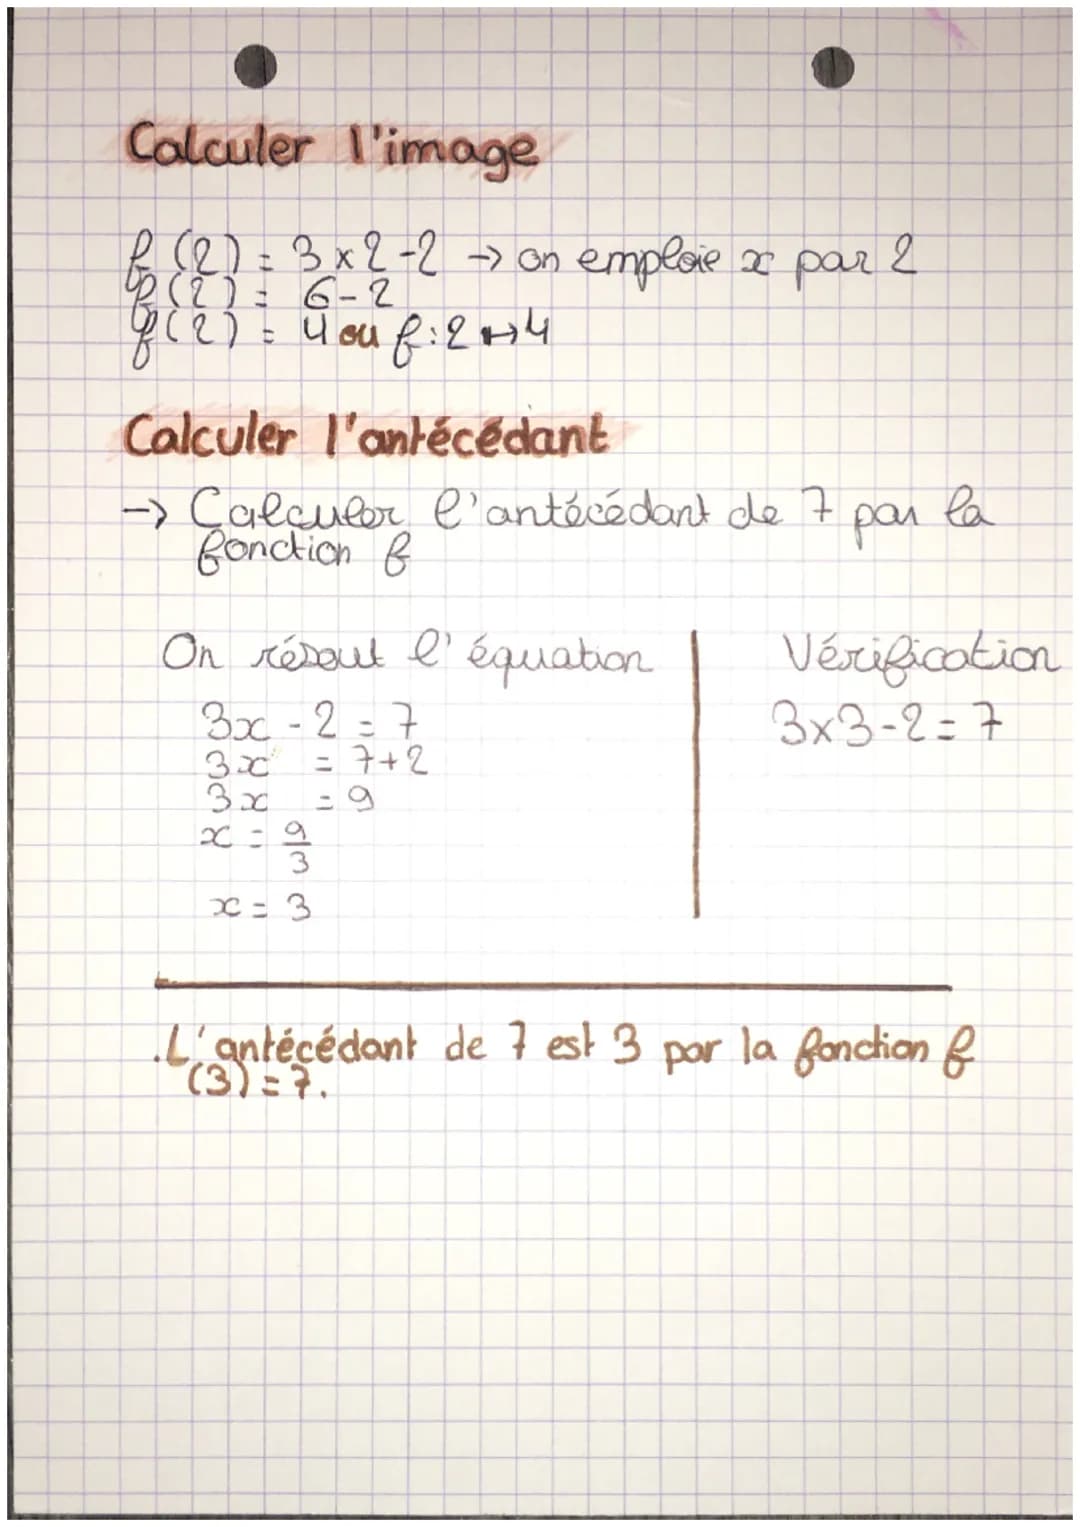 Calculer l'image
f(2) = 3 x 2 - 2 → on emploie x par 2
f(2) = 6 - 2
f(2) = 4 ou f : 2 ↦ 4
Calculer l'antécédant
→ Calculer l'antécédant de 7 par la
fonction f
On résout l'équation
3x - 2 = 7
3x = 7 + 2
3x = 9
x = 9/3
x = 3
Vérification
3x3-2 = 7
.L'antécédant de 7 est 3 par la fonction f
(3) = 7.